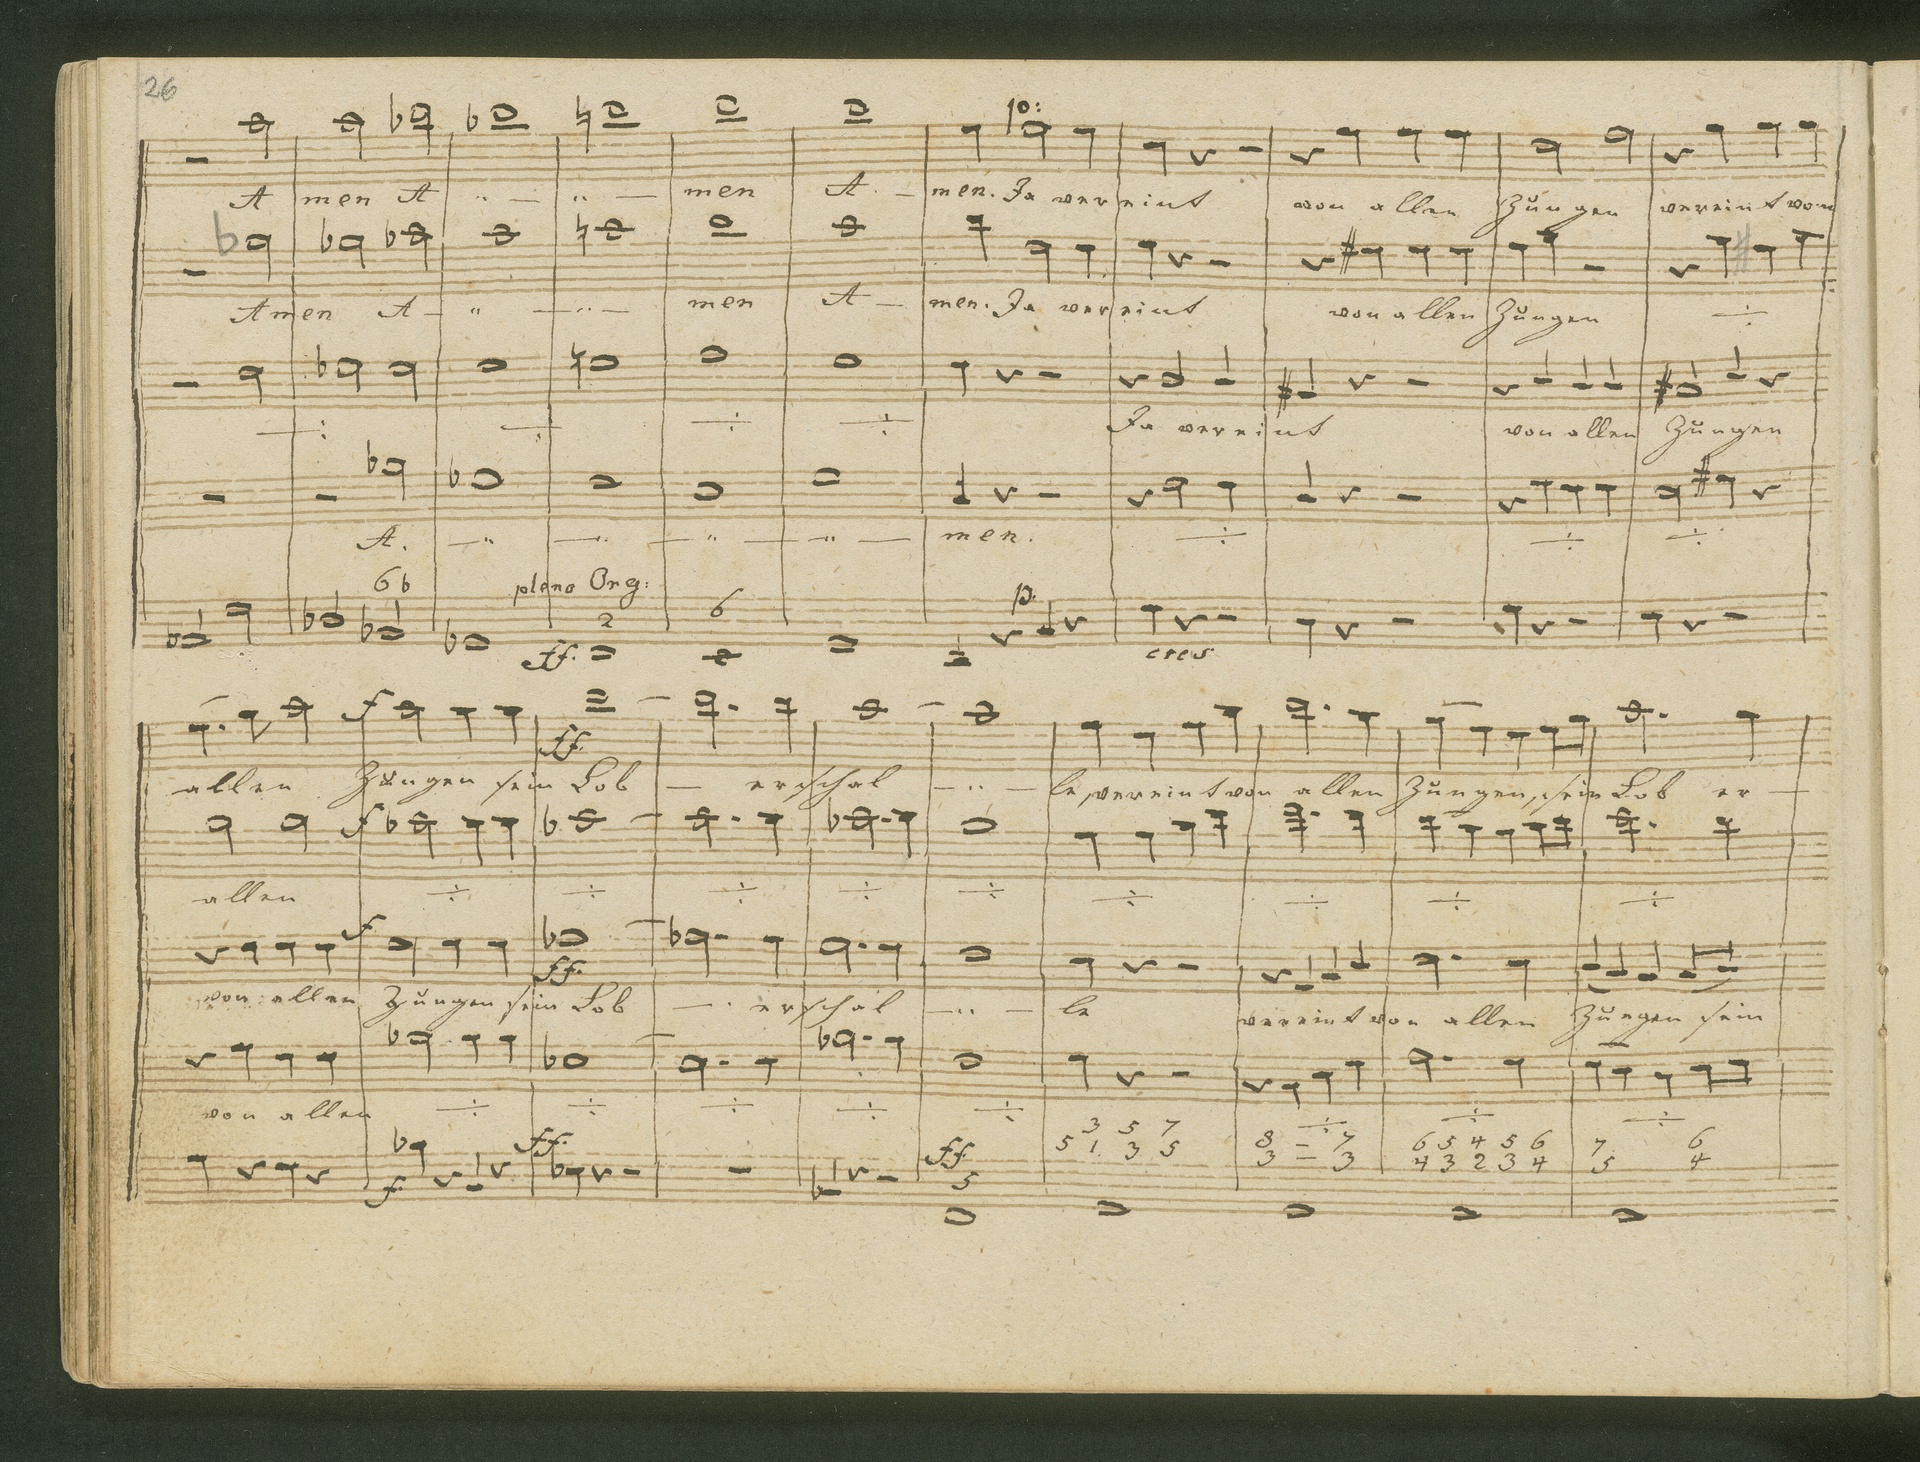 26
po:
A men A " — " — men A. — men. Ja vereint von allen Zungen vereint von
Amen A — " — " — men A — men. Ja vereint von allen Zungen ÷
÷ ÷ ÷ ÷ Ja vereint von allen Zungen
A. — " — " — " — " — men. ÷ ÷ ÷
6b pleno Org: 6 p:
2
ff. cres
f ff.
allen Zungen sein Lob — erschal — " — le, vereint von allen Zungen, sein Lob er —
f
allen ÷ ÷ ÷ ÷ ÷ ÷ ÷ ÷ ÷
f ff.
von allen Zungen sein Lob — . erschal — " — le vereint von allen Zungen sein
von allen ÷ ÷ ÷ ÷ ÷ ÷ ÷ ÷
3 5 7
ff. ff. 5 1. 3 5 8 = 7 6 5 4 5 6 7 6
3 = 3 4 3 2 3 4 5 4
f. 5